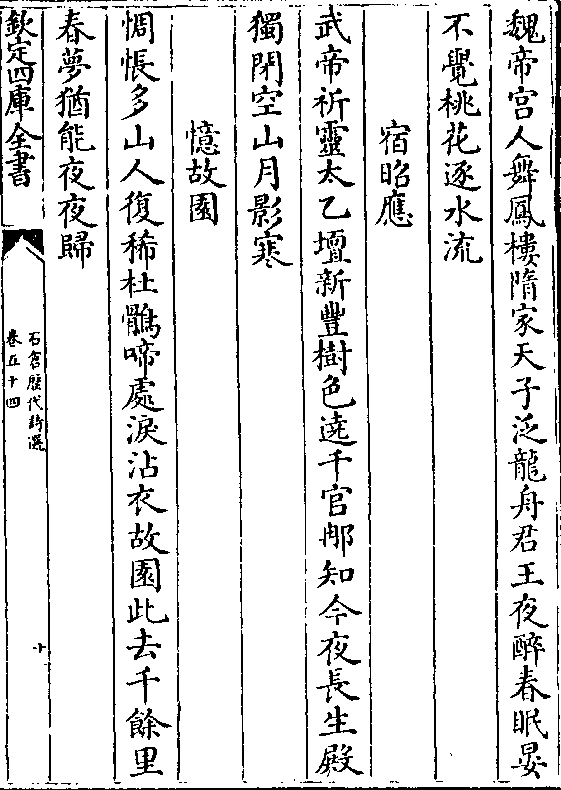 魏帝宫人舞鳳樓隋家天子泛龍舟君王夜醉春眠晏
不覺桃花逐水流
宿昭應
武帝祈靈太乙壇新豐樹色遶千官那知今夜長生殿
獨閉空山月影寒
憶故園
惆悵多山人復稀杜鵑啼處淚沾衣故園此去千餘里
春夢猶能夜夜歸
欽定四庫全書
石倉歷代詩選
卷五十四
十